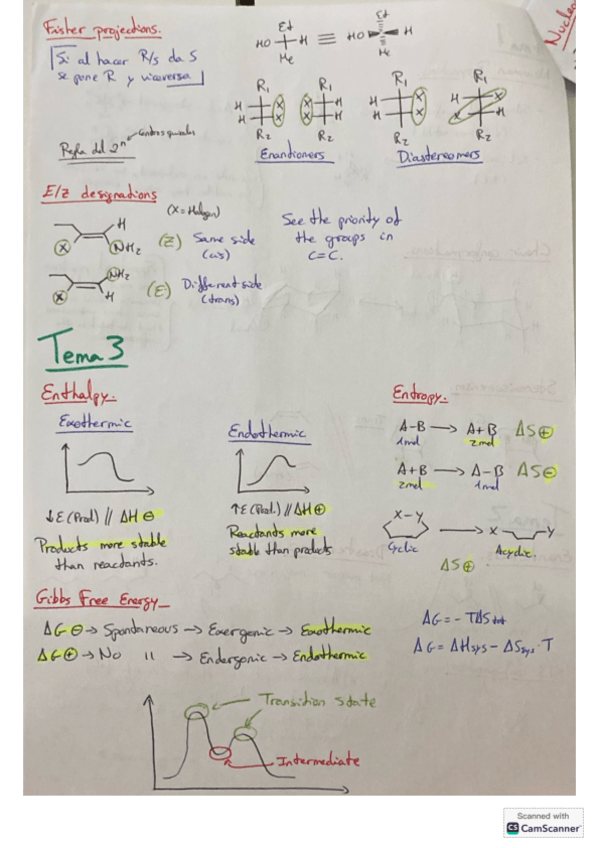 Fisher projections.
Si al hacer R/s da S
se pone R y viceversa
Et
HO H
Me
≡
Et
HO H
Me
Nucleo
R₁
H X
H X
R₂
R₁
X H
X H
R₂
Enantiomers
R₁
H X
H X
R₂
R₁
H X
X H
R₂
Diastereomers
Regla del 2ⁿ
centros quirales
E/Z designations
(X = Halogen)
H
X NH₂
(Z) Same side
(cis)
NH₂
X H
(E) Different side
(trans)
See the priority of
the groups in
C=C.
Tema 3
Enthalpy.
Exothermic
↓E (Prod) // ΔH ⊖
Products more stable
than reactants.
Endothermic
↑E (Prod.) // ΔH ⊕
Reactants more
stable than products
Entropy.
A-B → A+B ΔS⊕
1mol 2mol
A+B → A-B ΔS⊖
2mol 1mol
X-Y → X Y
Cyclic Acyclic.
ΔS⊕
Gibbs Free Energy
ΔG⊖ → Spontaneous → Exergonic → Exothermic
ΔG⊕ → No " → Endergonic → Endothermic
ΔG = -TΔStot
ΔG = ΔHsys - ΔSsys · T
Transition state
Intermediate
Scanned with
CS CamScanner